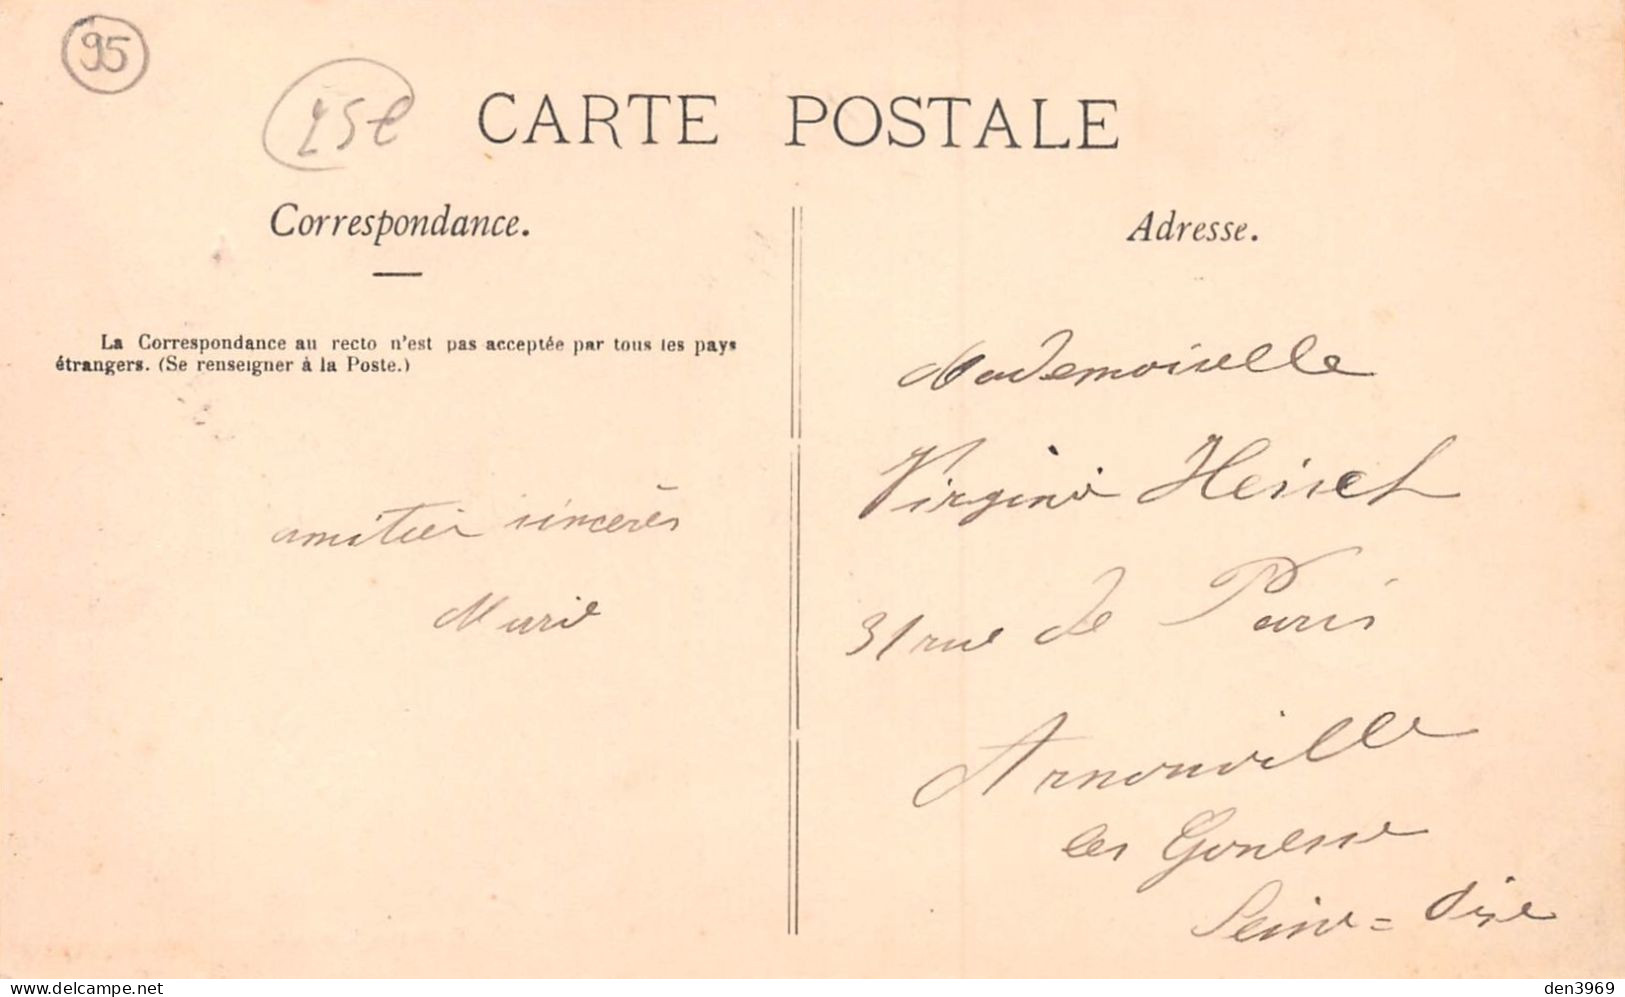 95
CARTE POSTALE
Correspondance.
Adresse.
La Correspondance au recto n'est pas acceptée par tous les pays
étrangers. (Se renseigner à la Poste.)
Mademoiselle
Virginie
amitiés sincères
31 rue de Paris
Marie
Arnouville
les Gonesse
Seine = Oise
delcampe.net
den3969